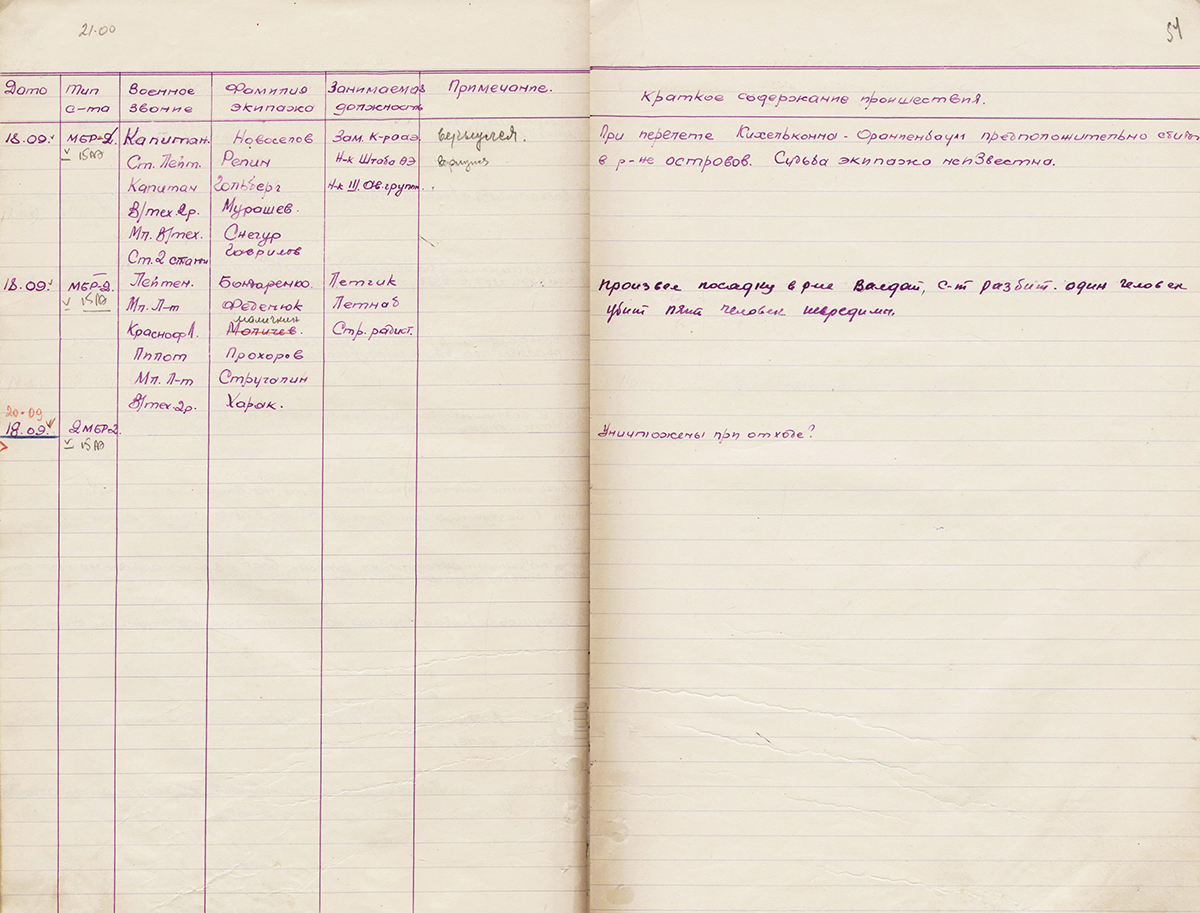 21.00
51
Дата Тип Военное Фамилия Занимаемая Примечание. Краткое содержание происшествия.
с-та звание экипажа должность
18.09. МБР-2 Капитан. Новоселов Зам. К-ра АЭ. вернулся. При перелете Кихельконна - Ораниенбаум предположительно сбит
V 15АЭ Ст. Лейт. Репин Н-к Штаба АЭ в р-не островов. Судьба экипажа неизвестна.
Капитан Гольберг Н-к III. Ав. групп.
В/тех. 2р. Мурашев.
Мл. В/тех. Снегур
Ст. 2 стати Гаврилов
18.09. МБР-2. Лейтен. Бондаренко. Летчик Произвел посадку в р-не Валдай, с-т разбит. один человек
V 15АЭ Мл. Л-т Феденюк Летнаб убит пять человек невредимы.
Маличкин
Краснофл. Маличев. Стр. радист.
Пилот Прохоров
Мл. Л-т Стругалин
В/тех. 2р. Харак.
20.09
18.09. 2 МБР-2. Уничтожены при отходе?
V 15АЭ